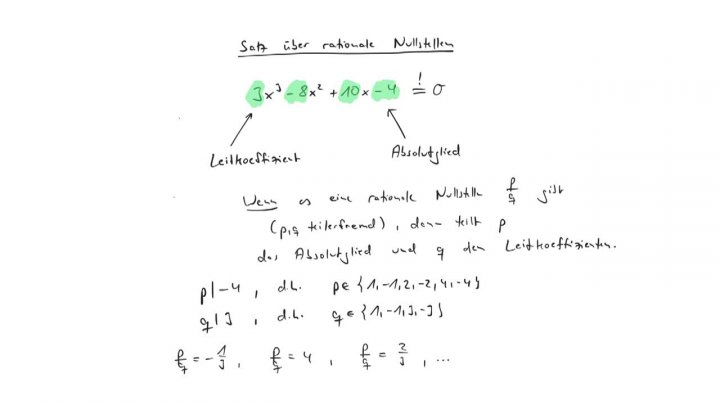 Satz über rationale Nullstellen
3x³ - 8x² + 10x - 4 =! 0
Leitkoeffizient
Absolutglied
Wenn es eine rationale Nullstelle p/q gibt
(p,q teilerfremd), dann teilt p
das Absolutglied und q den Leitkoeffizienten.
p | -4 , d.h. p ∈ {1,-1,2,-2,4,-4}
q | 3 , d.h. q ∈ {1,-1,3,-3}
p/q = -1/3 , p/q = 4 , p/q = 2/3 , ...